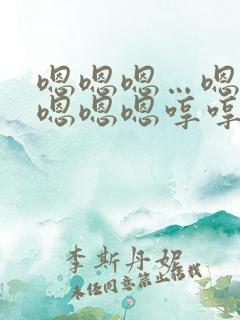 嗯嗯嗯…嗯
嗯嗯嗯哼哼
李斯丹妮
未经同意禁止搭载